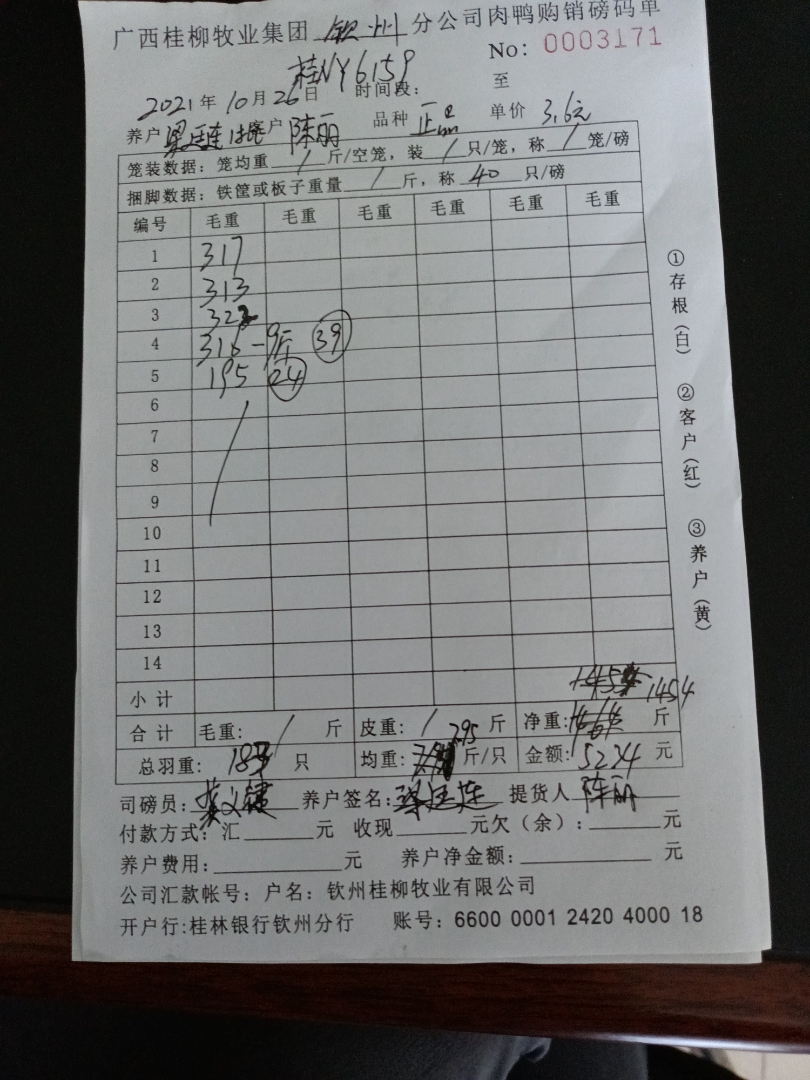 广西桂柳牧业集团 钦州 分公司肉鸭购销磅码单
No: 0003171
桂NY6159
2021年 10月 26日 时间段: 至
养户 客户 陈丽 品种 正品 单价 3.6元
笼装数据: 笼均重 / 斤/空笼, 装 / 只/笼, 称 / 笼/磅
捆脚数据: 铁筐或板子重量 / 斤, 称 40 只/磅
编号 毛重 毛重 毛重 毛重 毛重 毛重
1 317
2 313
3 322
4 316 -9斤 39
5 195 24
6
7
8
9
10
11
12
13
14
小计
合计 毛重: / 斤 皮重: / 斤 净重: 1454 斤
总羽重: 183 只 均重: 7.95 斤/只 金额: 5234 元
司磅员: 养户签名: 提货人 陈丽
付款方式: 汇 元 收现 元欠(余): 元
养户费用: 元 养户净金额: 元
公司汇款帐号: 户名: 钦州桂柳牧业有限公司
开户行:桂林银行钦州分行 账号: 6600 0001 2420 4000 18
①存根(白) ②客户(红) ③养户(黄)